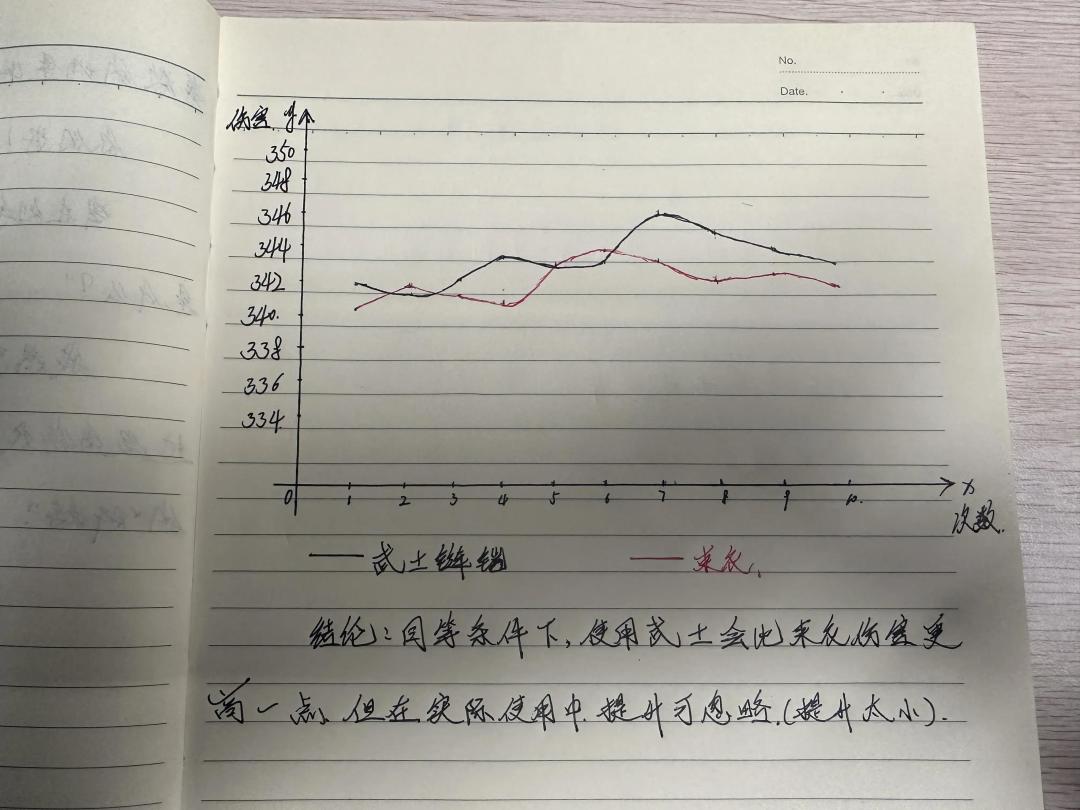 No.
Date.
伤害 y
350
348
346
344
342
340.
338
336
334
0 1 2 3 4 5 6 7 8 9 10. x
次数.
武士 束衣
结论:同等条件下,使用武士会比束衣伤害更
高一点,但在实际使用中,提升可忽略.(提升太小).